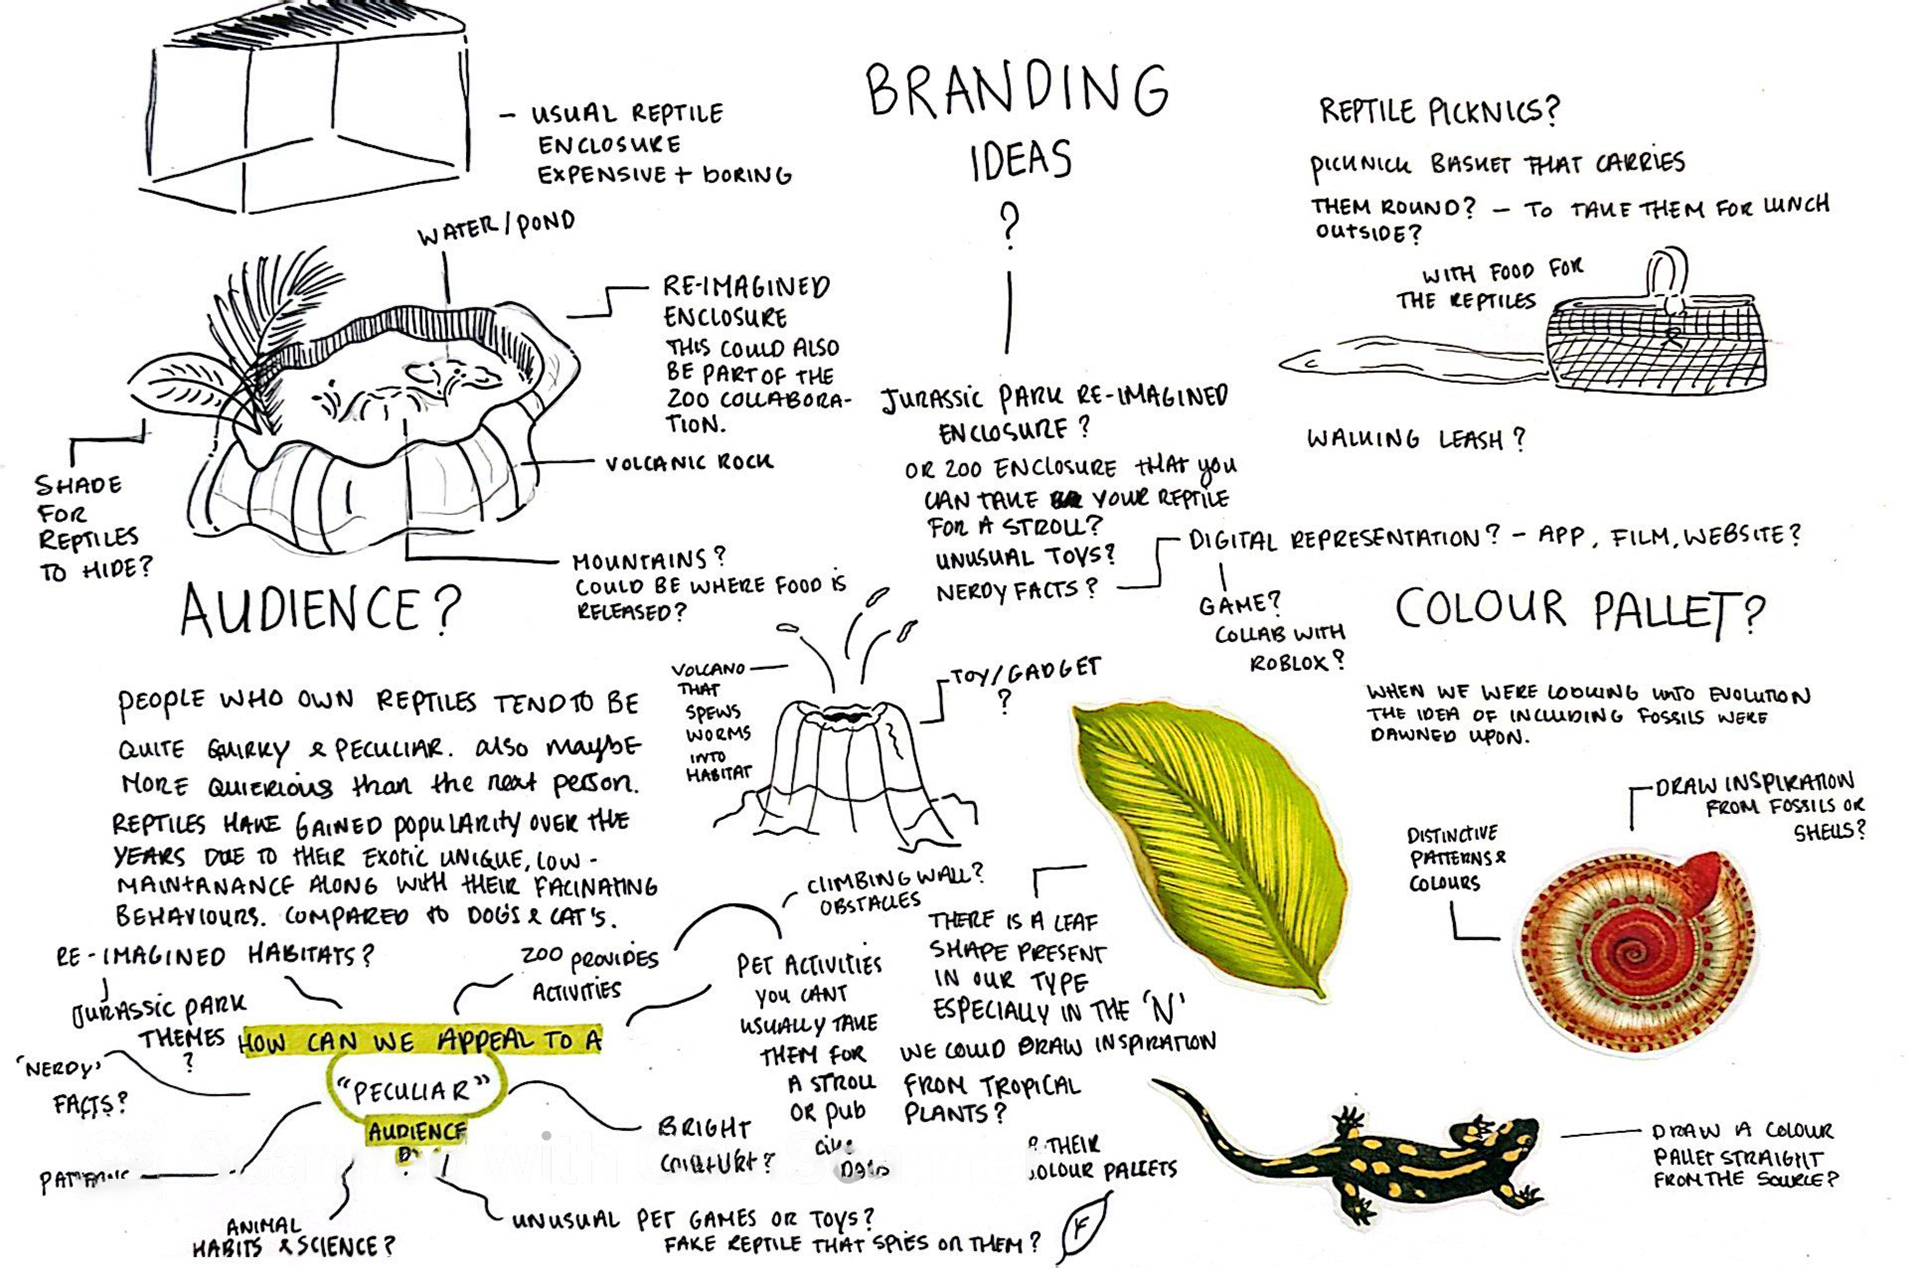 BRANDING
IDEAS
?
- USUAL REPTILE
ENCLOSURE
EXPENSIVE + BORING
WATER/POND
RE-IMAGINED
ENCLOSURE
THIS COULD ALSO
BE PART OF THE
ZOO COLLABORA-
TION.
VOLCANIC ROCK
SHADE
FOR
REPTILES
TO HIDE?
MOUNTAINS?
COULD BE WHERE FOOD IS
RELEASED?
JURASSIC PARK RE-IMAGINED
ENCLOSURE?
OR ZOO ENCLOSURE THAT YOU
CAN TAKE YOUR REPTILE
FOR A STROLL?
UNUSUAL TOYS?
NERDY FACTS?
DIGITAL REPRESENTATION? - APP, FILM, WEBSITE?
GAME?
COLLAB WITH
ROBLOX?
REPTILE PICKNICS?
PICKNICK BASKET THAT CARRIES
THEM ROUND? - TO TAKE THEM FOR LUNCH
OUTSIDE?
WITH FOOD FOR
THE REPTILES
WALKING LEASH?
AUDIENCE?
PEOPLE WHO OWN REPTILES TEND TO BE
QUITE QUIRKY & PECULIAR. also mayBE
MORE QUIERIOUS than the next person.
REPTILES HAVE GAINED POPULARITY OVER THE
YEARS DUE TO THEIR EXOTIC UNIQUE, LOW-
MAINTANANCE ALONG WITH THEIR FACINATING
BEHAVIOURS. COMPARED TO DOG'S & CAT'S.
VOLCANO
THAT
SPEWS
WORMS
INTO
HABITAT
TOY/GADGET
?
COLOUR PALLET?
WHEN WE WERE LOOKING INTO EVOLUTION
THE IDEA OF INCLUDING FOSSILS WERE
DAWNED UPON.
DRAW INSPIRATION
FROM FOSSILS OR
SHELLS?
DISTINCTIVE
PATTERNS &
COLOURS
THERE IS A LEAF
SHAPE PRESENT
IN OUR TYPE
ESPECIALLY IN THE 'N'
WE COULD DRAW INSPIRATION
FROM TROPICAL
PLANTS?
THEIR
COLOUR PALLETS
F
DRAW A COLOUR
PALLET STRAIGHT
FROM THE SOURCE?
RE-IMAGINED HABITATS?
JURASSIC PARK
THEMES
?
'NERDY'
FACTS?
ANIMAL
HABITS & SCIENCE?
ZOO PROVIDES
ACTIVITIES
CLIMBING WALL?
OBSTACLES
PET ACTIVITIES
YOU CANT
USUALLY TAKE
THEM FOR
A STROLL
OR PUB
HOW CAN WE APPEAL TO A
"PECULIAR"
AUDIENCE
BRIGHT
UNUSUAL PET GAMES OR TOYS?
FAKE REPTILE THAT SPIES ON THEM?